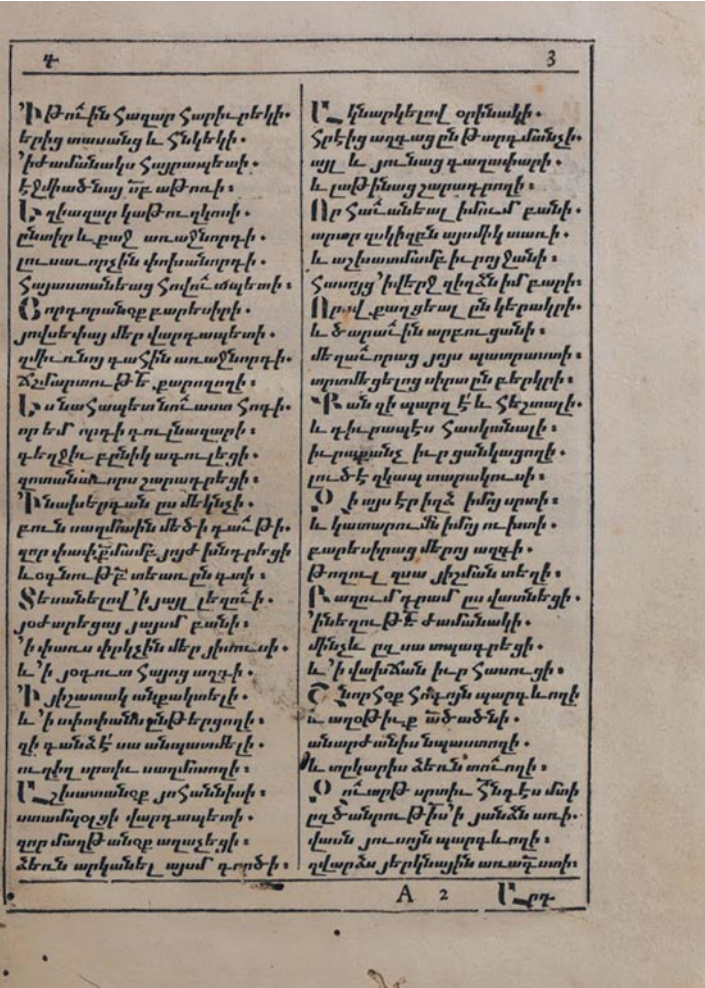 Դ 3
Ի թուին հազար հարիւրեկի.
երից տասանց և հնկեկի.
՚ի ժամանակս հայրապետի.
էջմիածնայ սբ աթոռի։
Եղիազար կաթուղկոսի.
ընտիր և քաջ առաջնորդի.
լուսաւորչին փոխանորդի.
հայաստանեայց հովուապետի։
Յորդորանօք բարեսիրի.
յովսեփայ մեր վարդապետի.
զմիւռնոյ գահին առաջնորդի.
ճշմարտութե քարոզողի։
Ես նահապետ նուաստ հոգի.
որ եմ որդի գուլնազարի։
գեղջիւ բընիկ ագուլեցի.
զոտանաւորս շարադրեցի։
Ի նախերգան ըս մեկնչի.
բուն սաղմոսին մեծի դաւթի.
զոր փափքմամբ յոյժ խնդրեցի
և օգնութբ տեառըն գտի։
Տեսանելով ՚ի յայլ լեզուի.
յօժարեցայ յայսմ բանի։
՚ի փառս փրկչին մեր յիսուսի.
և ՚ի յօգուտ հայոց ազգի.
Ի յիշատակ անքակտելի.
և ՚ի սփոփանս ընթերցողի։
զի գանձ է սա անպատմելի.
ուղիղ սրտիւ սաղմոսողի։
Աշխատանօք յոհաննիսի։
ստամպօլցի վարդապետի.
զոր մաղթանօք աղաչեցի։
ձեռն արկանել այսմ գործի։
Ակնարկելով օրինակի.
հրէից ազգաց ըն թարգմանչի.
այլ և յունաց գաղափարի.
և լաթինաց շարադրողի։
Որ հաւանեալ իմում բանի.
արար զսկիզբն այսմիկ տառի.
և աշխատմամբ իւրոյ ջանի.
հասոյց ՚ի վերջ զիղձն իմ բարի։
Որով քաղցեալ ըն կերակրի.
և ծարաւին արբուցանի։
մեղաւորաց յոյս պատրաստի.
արտմեցելոց սիրտ ըն բերկրի։
Քանզի պարզ է և հեշտալի.
և դիւրապէս հասկանալի։
իւրաքանչ իւր ցանկացողի.
լուծէ զկապ տարակուսի։
Զի այս էր իղձ իմոյ սրտի։
և կատարումն իմոյ ուխտի.
բարեսիրաց մերոյ ազգի.
թողուլ զսա յիշման տեղի։
Բազում դրամ ըս վատնեցի.
՚ի նեղութե ժամանակի.
մինչև ըզսա տպագրեցի.
և ՚ի վախճան իւր հասուցի։
Շնորհօք հոգոյն պարգևողի
և աղօթիւք ածածնի.
անարժանիս նպաստողի.
և տկարիս ձեռն տուողի։
Զուարթ սրտիւ հնդէս մտի
ըզծանրութիս ՚ի յանձն առի.
վասն յուսոյն պարգևողի։
զվարձս յերկնային առագաստի։
A 2 Արդ